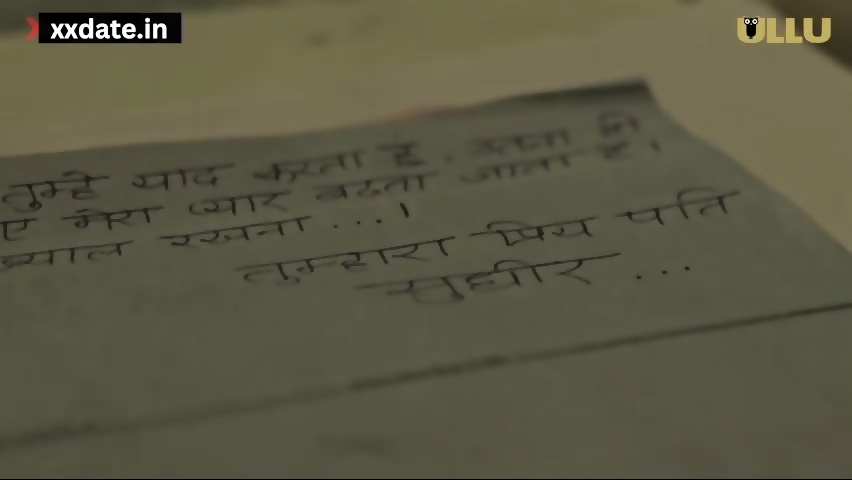 xxdate.in
ULLU
तुम्हे याद करता है. उतना ही
ए मेरा प्यार बढता जाता है।
ख्याल रखना ...।
तुम्हारा प्रिय पति
सुधीर ...